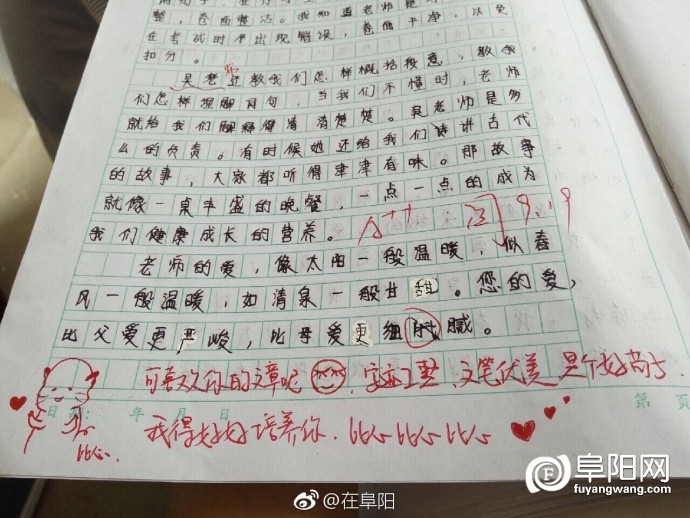 整，卷面整洁。我知道老师是
在考试时不出现错误，卷面干净，以免
扣分。
吴老师还教我们怎样概括段意，教我
们怎样理解育句，当我们不懂时，老师
就给我们解释得清清楚楚。吴老师是多
么的负责。有时候她还给我们讲讲古代
的故事，大家都听得津津有味。那故事
就像一桌丰盛的晚餐，一点一点的成为
我们健康成长的营养。
A++
9.19
老师的爱，像太阳一般温暖，似春
风一般温暖，如清泉一般甘甜。您的爱，
比父爱更严峻，比母爱更细腻。
可喜欢你的文章呢，字迹工整，文笔优美，是个好苗子，
我得好好培养你，比心比心比心
比心
日期： 年 月 日
第 页
@在阜阳
阜阳网
fuyangwang.com